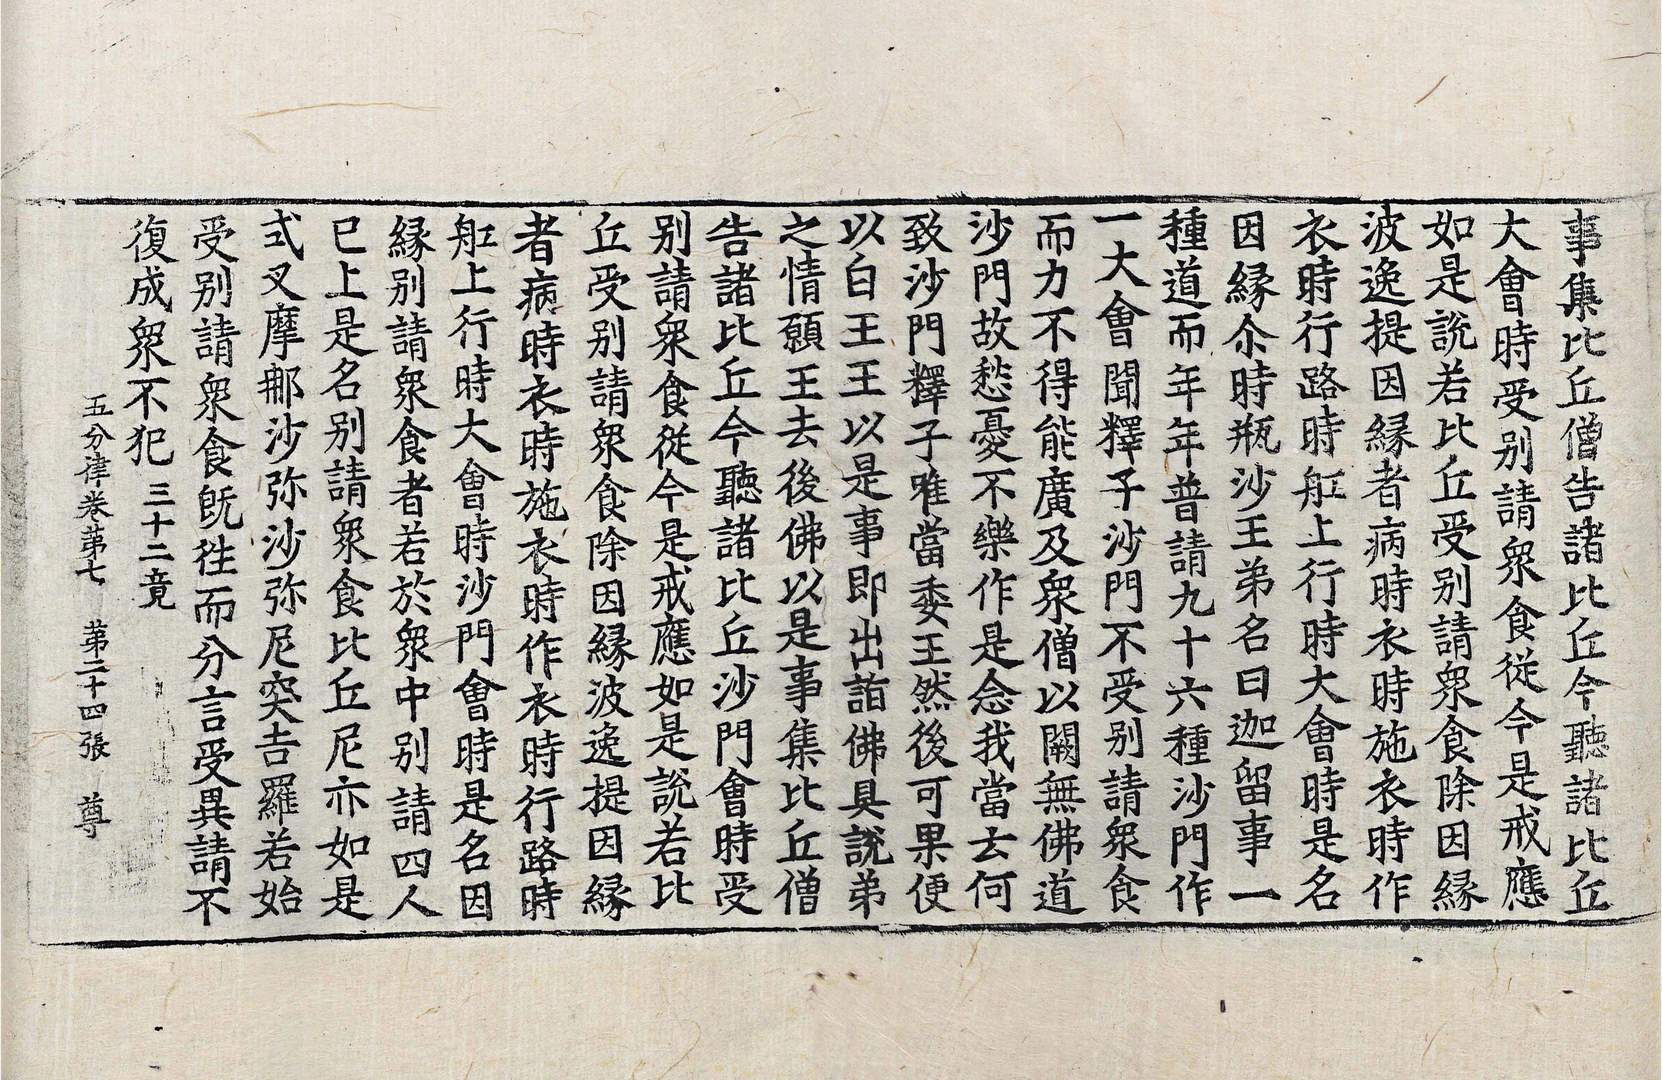 事集比丘僧告諸比丘今聽諸比丘
大會時受別請衆食從今是戒應
如是說若比丘受別請衆食除因緣
波逸提因緣者病時衣時施衣時作
衣時行路時舡上行時大會時是名
因緣尒時瓶沙王弟名曰迦留事一
種道而年年普請九十六種沙門作
一大會聞釋子沙門不受別請衆食
而力不得能廣及衆僧以闕無佛道
沙門故愁憂不樂作是念我當去何
致沙門釋子唯當委王然後可果便
以白王王以是事即出詣佛具說弟
之情願王去後佛以是事集比丘僧
告諸比丘今聽諸比丘沙門會時受
別請衆食從今是戒應如是說若比
丘受別請衆食除因緣波逸提因緣
者病時衣時施衣時作衣時行路時
舡上行時大會時沙門會時是名因
緣別請衆食者若於衆中別請四人
已上是名別請衆食比丘尼亦如是
式叉摩郍沙弥沙弥尼突吉羅若始
受別請衆食旣徃而分言受異請不
復成衆不犯 三十二竟
五分律卷第七 第二十四張 尊